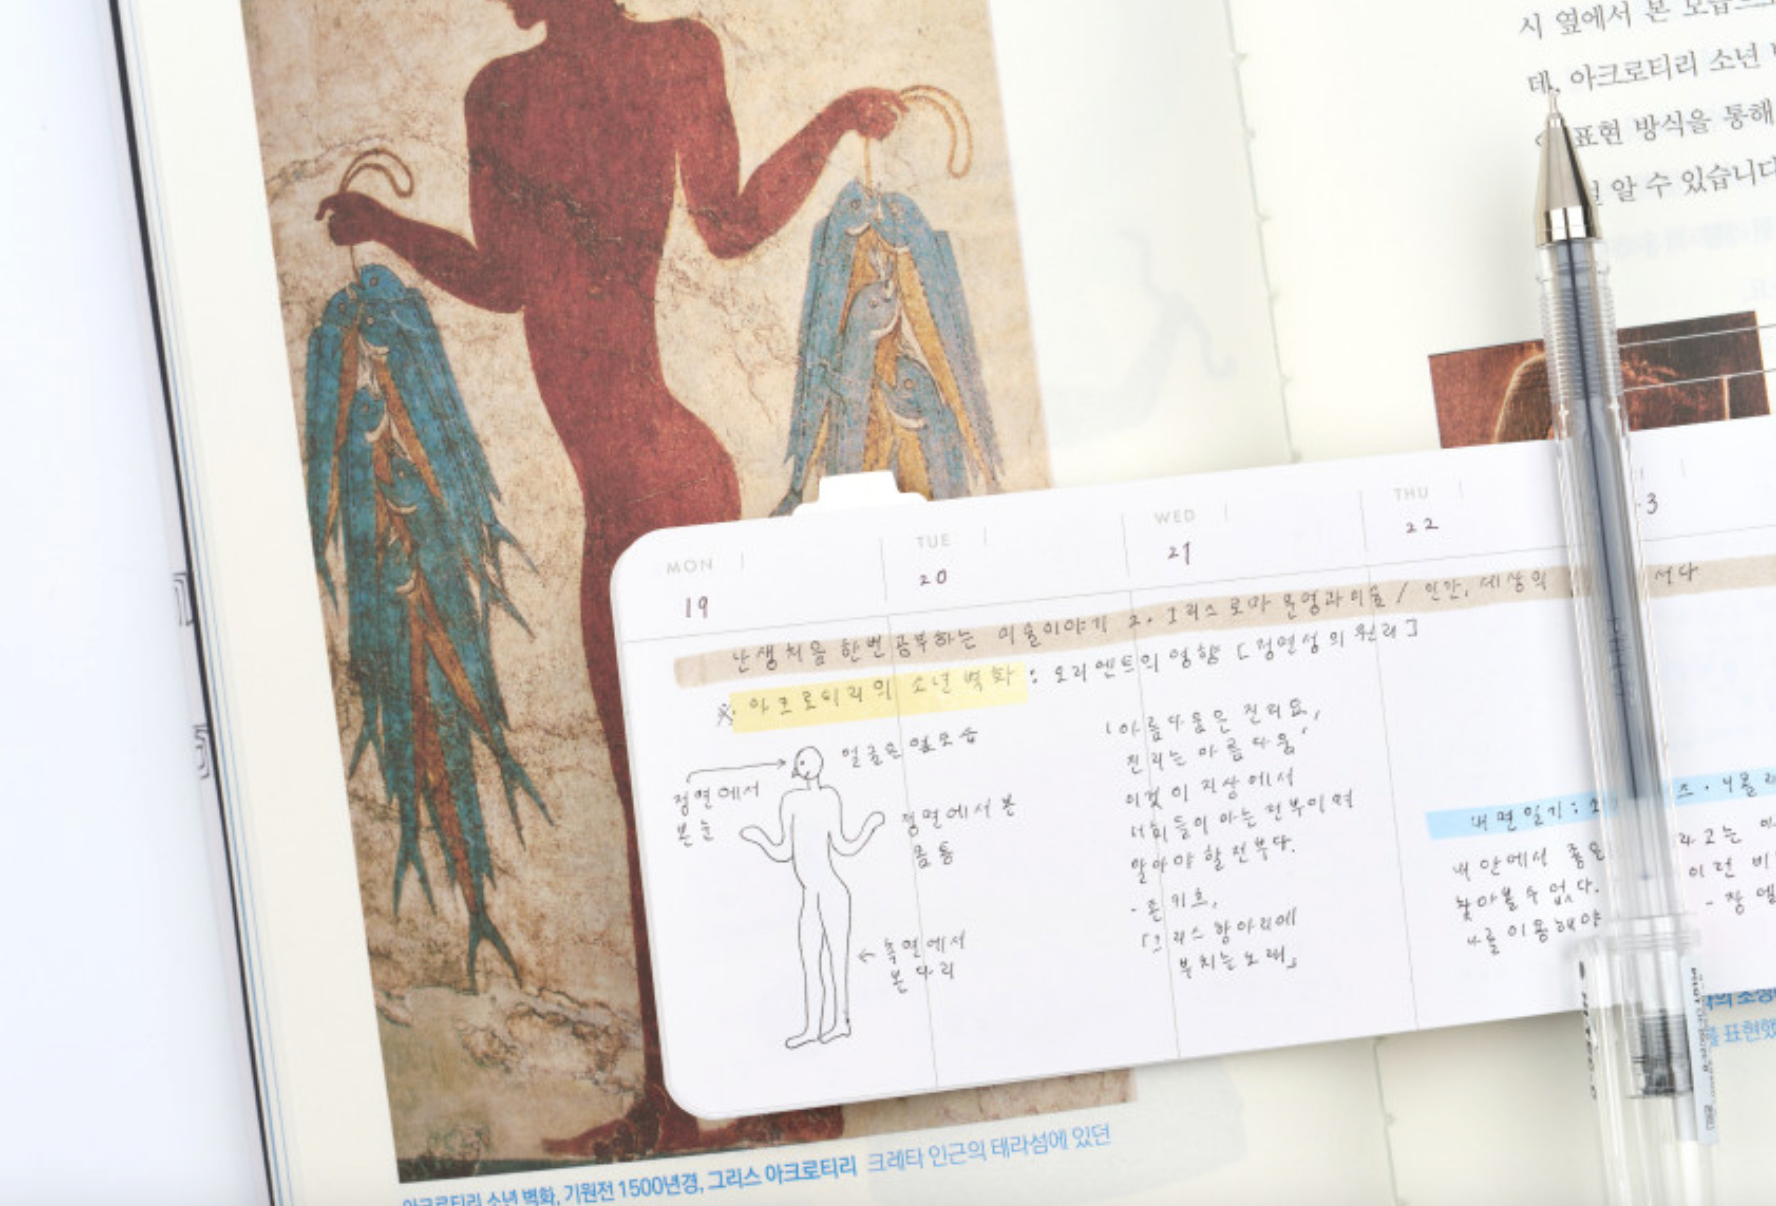 시 옆에서 본 모습으로
데, 아크로티리 소년
표현 방식을 통해
알 수 있습니다
MON
TUE
WED
THU
19
20
21
22
난생처음 한번 공부하는 미술이야기 2. 그리스 로마 문명과 미술 / 인간, 세상의 서다
※ 아크로티리의 소년 벽화 : 오리엔트의 영향 [정면성의 원리]
얼굴은 옆모습
정면에서
본 눈
정면에서 본
몸통
측면에서
본 다리
'아름다움은 진리요,
진리는 아름다움'
이것이 지상에서
너희들이 아는 전부이며
알아야 할 전부다.
- 존 키츠,
「그리스 항아리에
부치는 노래」
내면일기 :
내 안에서 좋은
찾아볼 수 없다.
나를 이용해야
라고는
이런
- 장
아크로티리 소년 벽화, 기원전 1500년경, 그리스 아크로티리 크레타 인근의 테라섬에 있던
표현했